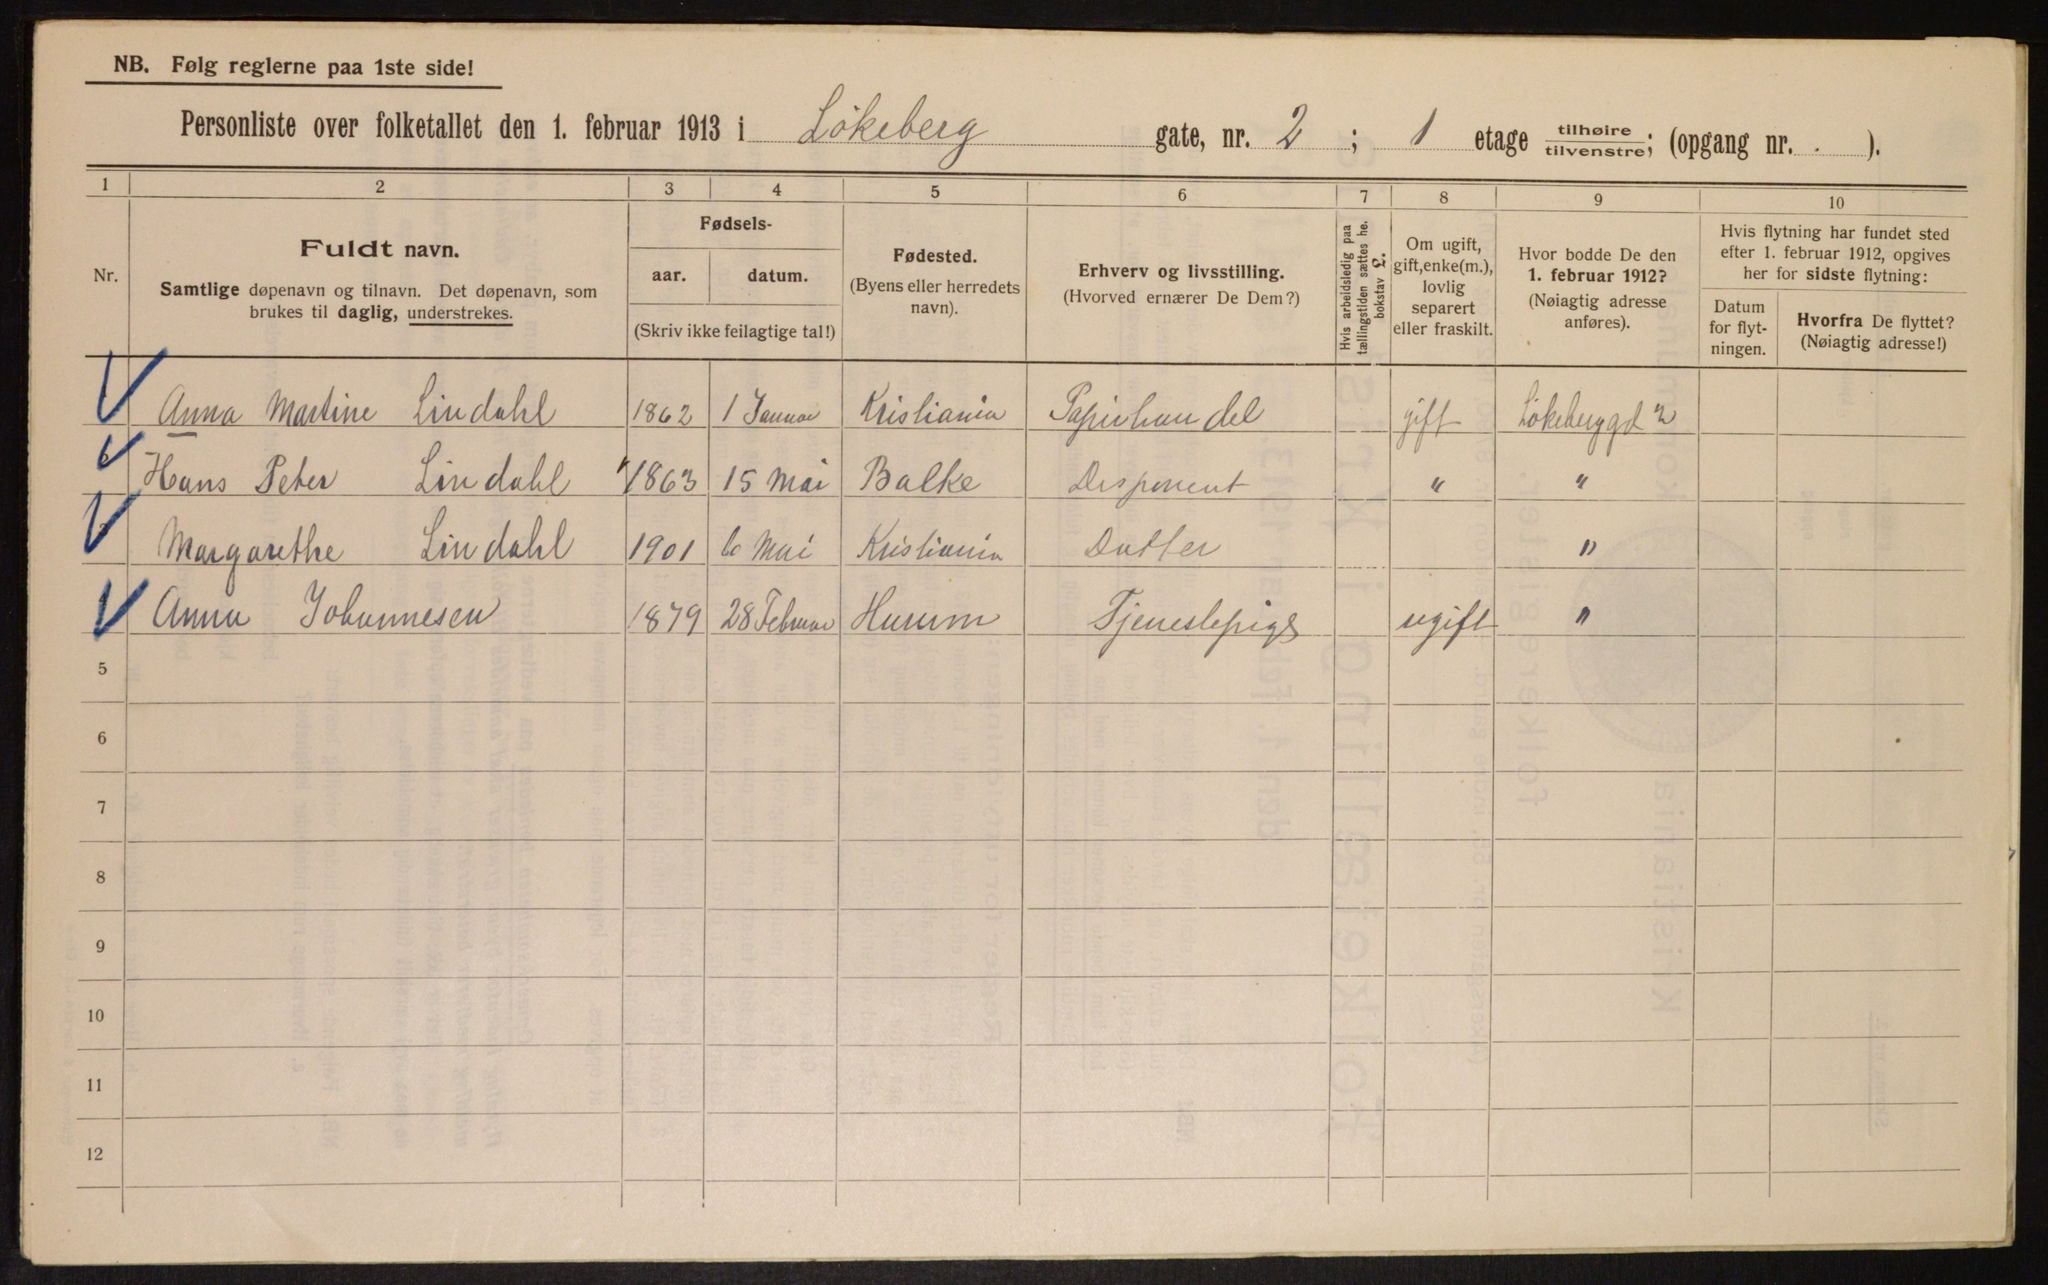 NB. Følg reglerne paa 1ste side!
Personliste over folketallet den 1. februar 1913 i Lökeberg gate, nr. 2 ; 1 etage tilhøire/tilvenstre; (opgang nr. . ).
1 2 3 4 5 6 7 8 9 10
Nr.
Fuldt navn.
Samtlige døpenavn og tilnavn. Det døpenavn, som
brukes til daglig, understrekes.
Fødsels-
aar. datum.
(Skriv ikke feilagtige tal!)
Fødested.
(Byens eller herredets
navn).
Erhverv og livsstilling.
(Hvorved ernærer De Dem?)
Hvis arbeidsledig paa
tællingstiden sættes he.
bokstav £.
Om ugift,
gift, enke(m.),
lovlig
separert
eller fraskilt.
Hvor bodde De den
1. februar 1912?
(Nøiagtig adresse
anføres).
Hvis flytning har fundet sted
efter 1. februar 1912, opgives
her for sidste flytning:
Datum
for flyt-
ningen.
Hvorfra De flyttet?
(Nøiagtig adresse!)
Anna Martine Lindahl 1862 1 Januar Kristiania Papirhandel gift Lökeberggd 2
Hans Peter Lindahl 1863 15 Mai Balke Disponent " "
Margarethe Lindahl 1901 6 Mai Kristiania Datter "
Anna Johannesen 1879 28 Februar Hurum Tjenestepige ugift "
5
6
7
8
9
10
11
12